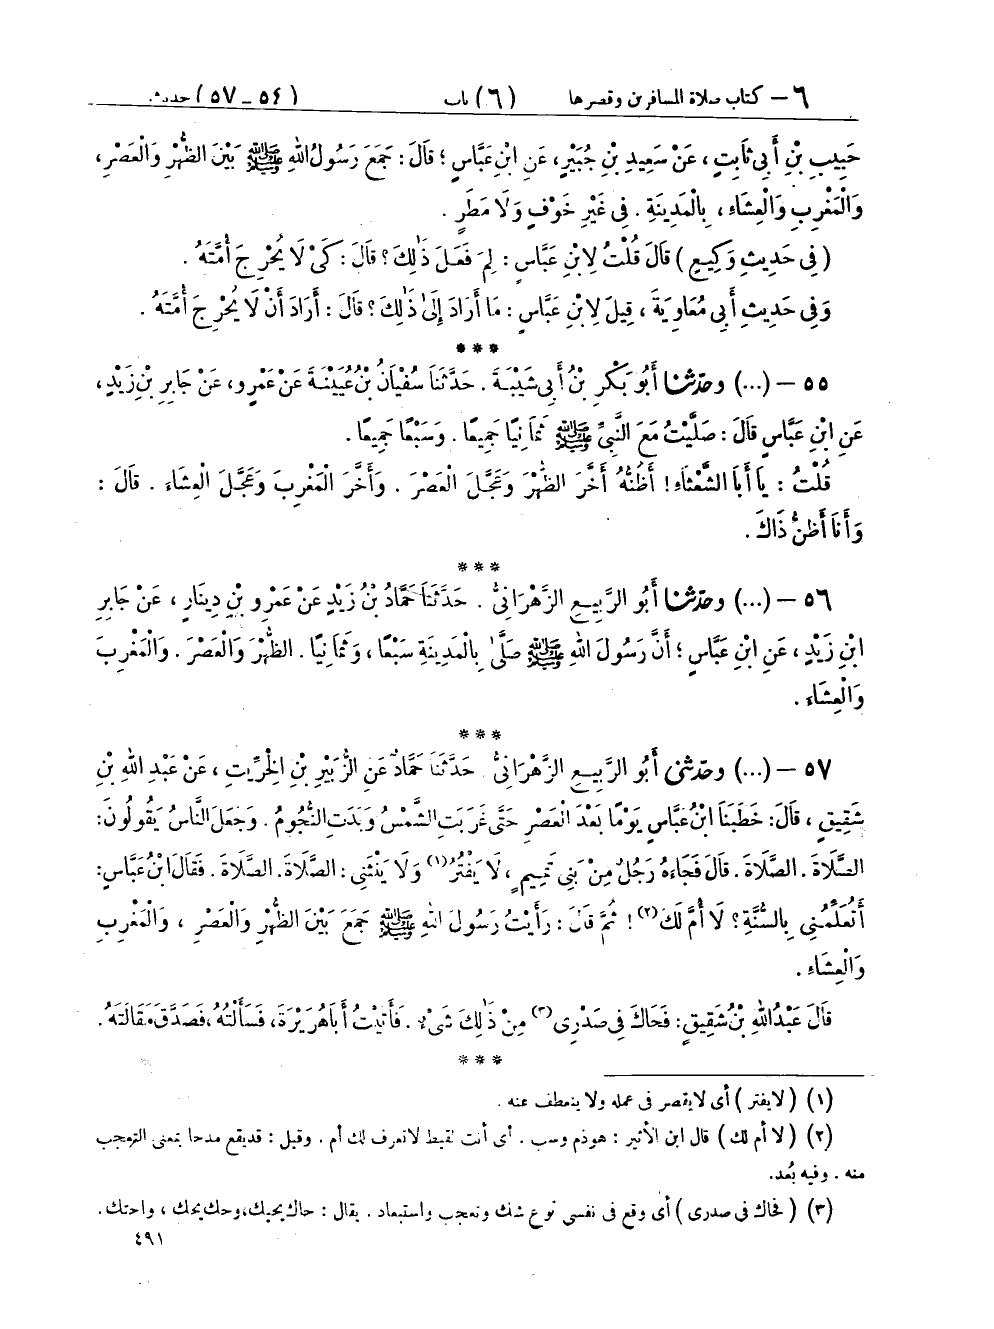 ٦ – كتاب صلاة المسافرين وقصرها (٦) باب (٥٤ – ٥٧) حديث
حَبِيبِ بْنِ أَبِي ثَابِتٍ ، عَنْ سَعِيدِ بْنِ جُبَيْرٍ، عَنِ ابْنِ عَبَّاسٍ ؛ قَالَ: جَمَعَ رَسُولُ اللهِ ﷺ بَيْنَ الظُّهْرِ وَالْعَصْرِ،
وَالْمَغْرِبِ وَالْعِشَاءِ ، بِالْمَدِينَةِ . فِي غَيْرِ خَوْفٍ وَلَا مَطَرٍ .
( فِي حَدِيثِ وَكِيعٍ ) قَالَ قُلْتُ لِابْنِ عَبَّاسٍ : لِمَ فَعَلَ ذَٰلِكَ ؟ قَالَ : كَيْ لَا يُحْرِجَ أُمَّتَهُ .
وَفِي حَدِيثِ أَبِي مُعَاوِيَةَ ، قِيلَ لِابْنِ عَبَّاسٍ : مَا أَرَادَ إِلَىٰ ذَٰلِكَ ؟ قَالَ : أَرَادَ أَنْ لَا يُحْرِجَ أُمَّتَهُ .
***
٥٥ – (...) وحدّثنا أَبُو بَكْرِ بْنُ أَبِي شَيْبَةَ . حَدَّثَنَا سُفْيَانُ بْنُ عُيَيْنَةَ عَنْ عَمْرٍو، عَنْ جَابِرِ بْنِ زَيْدٍ،
عَنِ ابْنِ عَبَّاسٍ قَالَ : صَلَّيْتُ مَعَ النَّبِيِّ ﷺ ثَمَانِيًا جَمِيعًا . وَسَبْعًا جَمِيعًا .
قُلْتُ : يَا أَبَا الشَّعْثَاءِ ! أَظُنُّهُ أَخَّرَ الظُّهْرَ وَعَجَّلَ الْعَصْرَ . وَأَخَّرَ الْمَغْرِبَ وَعَجَّلَ الْعِشَاءَ . قَالَ :
وَأَنَا أَظُنُّ ذَاكَ .
***
٥٦ – (...) وحدّثنا أَبُو الرَّبِيعِ الزَّهْرَانِيُّ . حَدَّثَنَا حَمَّادُ بْنُ زَيْدٍ عَنْ عَمْرِو بْنِ دِينَارٍ ، عَنْ جَابِرِ
ابْنِ زَيْدٍ ، عَنِ ابْنِ عَبَّاسٍ ؛ أَنَّ رَسُولَ اللهِ ﷺ صَلَّىٰ بِالْمَدِينَةِ سَبْعًا ، وَثَمَانِيًا . الظُّهْرَ وَالْعَصْرَ . وَالْمَغْرِبَ
وَالْعِشَاءَ .
***
٥٧ – (...) وحدّثني أَبُو الرَّبِيعِ الزَّهْرَانِيُّ . حَدَّثَنَا حَمَّادٌ عَنِ الزُّبَيْرِ بْنِ الْخِرِّيتِ ، عَنْ عَبْدِ اللهِ بْنِ
شَقِيقٍ ، قَالَ: خَطَبَنَا ابْنُ عَبَّاسٍ يَوْمًا بَعْدَ الْعَصْرِ حَتَّى غَرَبَتِ الشَّمْسُ وَبَدَتِ النُّجُومُ . وَجَعَلَ النَّاسُ يَقُولُونَ:
الصَّلَاةَ . الصَّلَاةَ . قَالَ فَجَاءَهُ رَجُلٌ مِنْ بَنِي تَمِيمٍ، لَا يَفْتُرُ(١) وَلَا يَنْثَنِي : الصَّلَاةَ. الصَّلَاةَ . فَقَالَ ابْنُ عَبَّاسٍ:
أَتُعَلِّمُنِي بِالسُّنَّةِ ؟ لَا أُمَّ لَكَ(٢) ! ثُمَّ قَالَ : رَأَيْتُ رَسُولَ اللهِ ﷺ جَمَعَ بَيْنَ الظُّهْرِ وَالْعَصْرِ ، وَالْمَغْرِبِ
وَالْعِشَاءِ .
قَالَ عَبْدُ اللهِ بْنُ شَقِيقٍ: فَحَاكَ فِي صَدْرِي(٣) مِنْ ذَٰلِكَ شَيْءٌ . فَأَتَيْتُ أَبَا هُرَيْرَةَ، فَسَأَلْتُهُ، فَصَدَّقَ مَقَالَتَهُ .
***
(١) ( لا يفتر ) أى لايقصر فى عمله ولا ينعطف عنه .
(٢) ( لا أم لك ) قال ابن الأثير : هو ذم وسب . أى أنت لقيط لاتعرف لك أم . وقيل : قد يقع مدحا بمعنى التعجب
منه . وفيه بُعد.
(٣) ( فحاك فى صدرى ) أى وقع فى نفسى نوع شك وتعجب واستبعاد . يقال : حاك يحيك، وحك يحك ، واحتك .
٤٩١